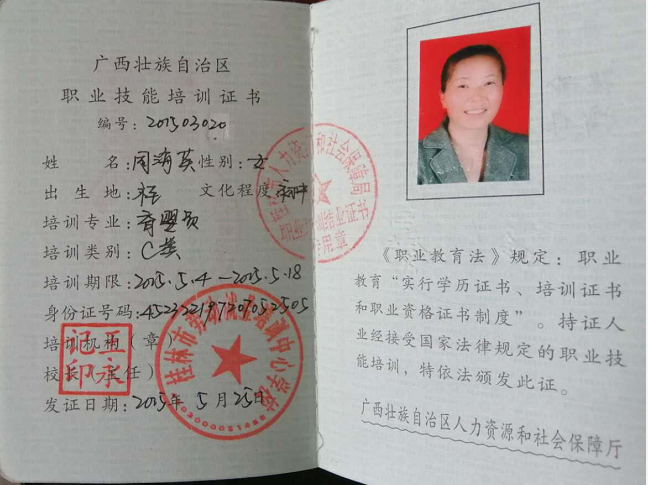 广西壮族自治区
职业技能培训证书
编号：201503020
姓 名：周海英 性别：女
出生地： 文化程度：
培训专业：育婴员
培训类别：C类
培训期限：2015.5.4—2015.5.18
身份证号码：
培训机构（章）
校长（主任）
发证日期：2015年5月25日
王永
记印
《职业教育法》规定：职业
教育“实行学历证书、培训证书
和职业资格证书制度”。持证人
业经接受国家法律规定的职业技
能培训，特依法颁发此证。
广西壮族自治区人力资源和社会保障厅